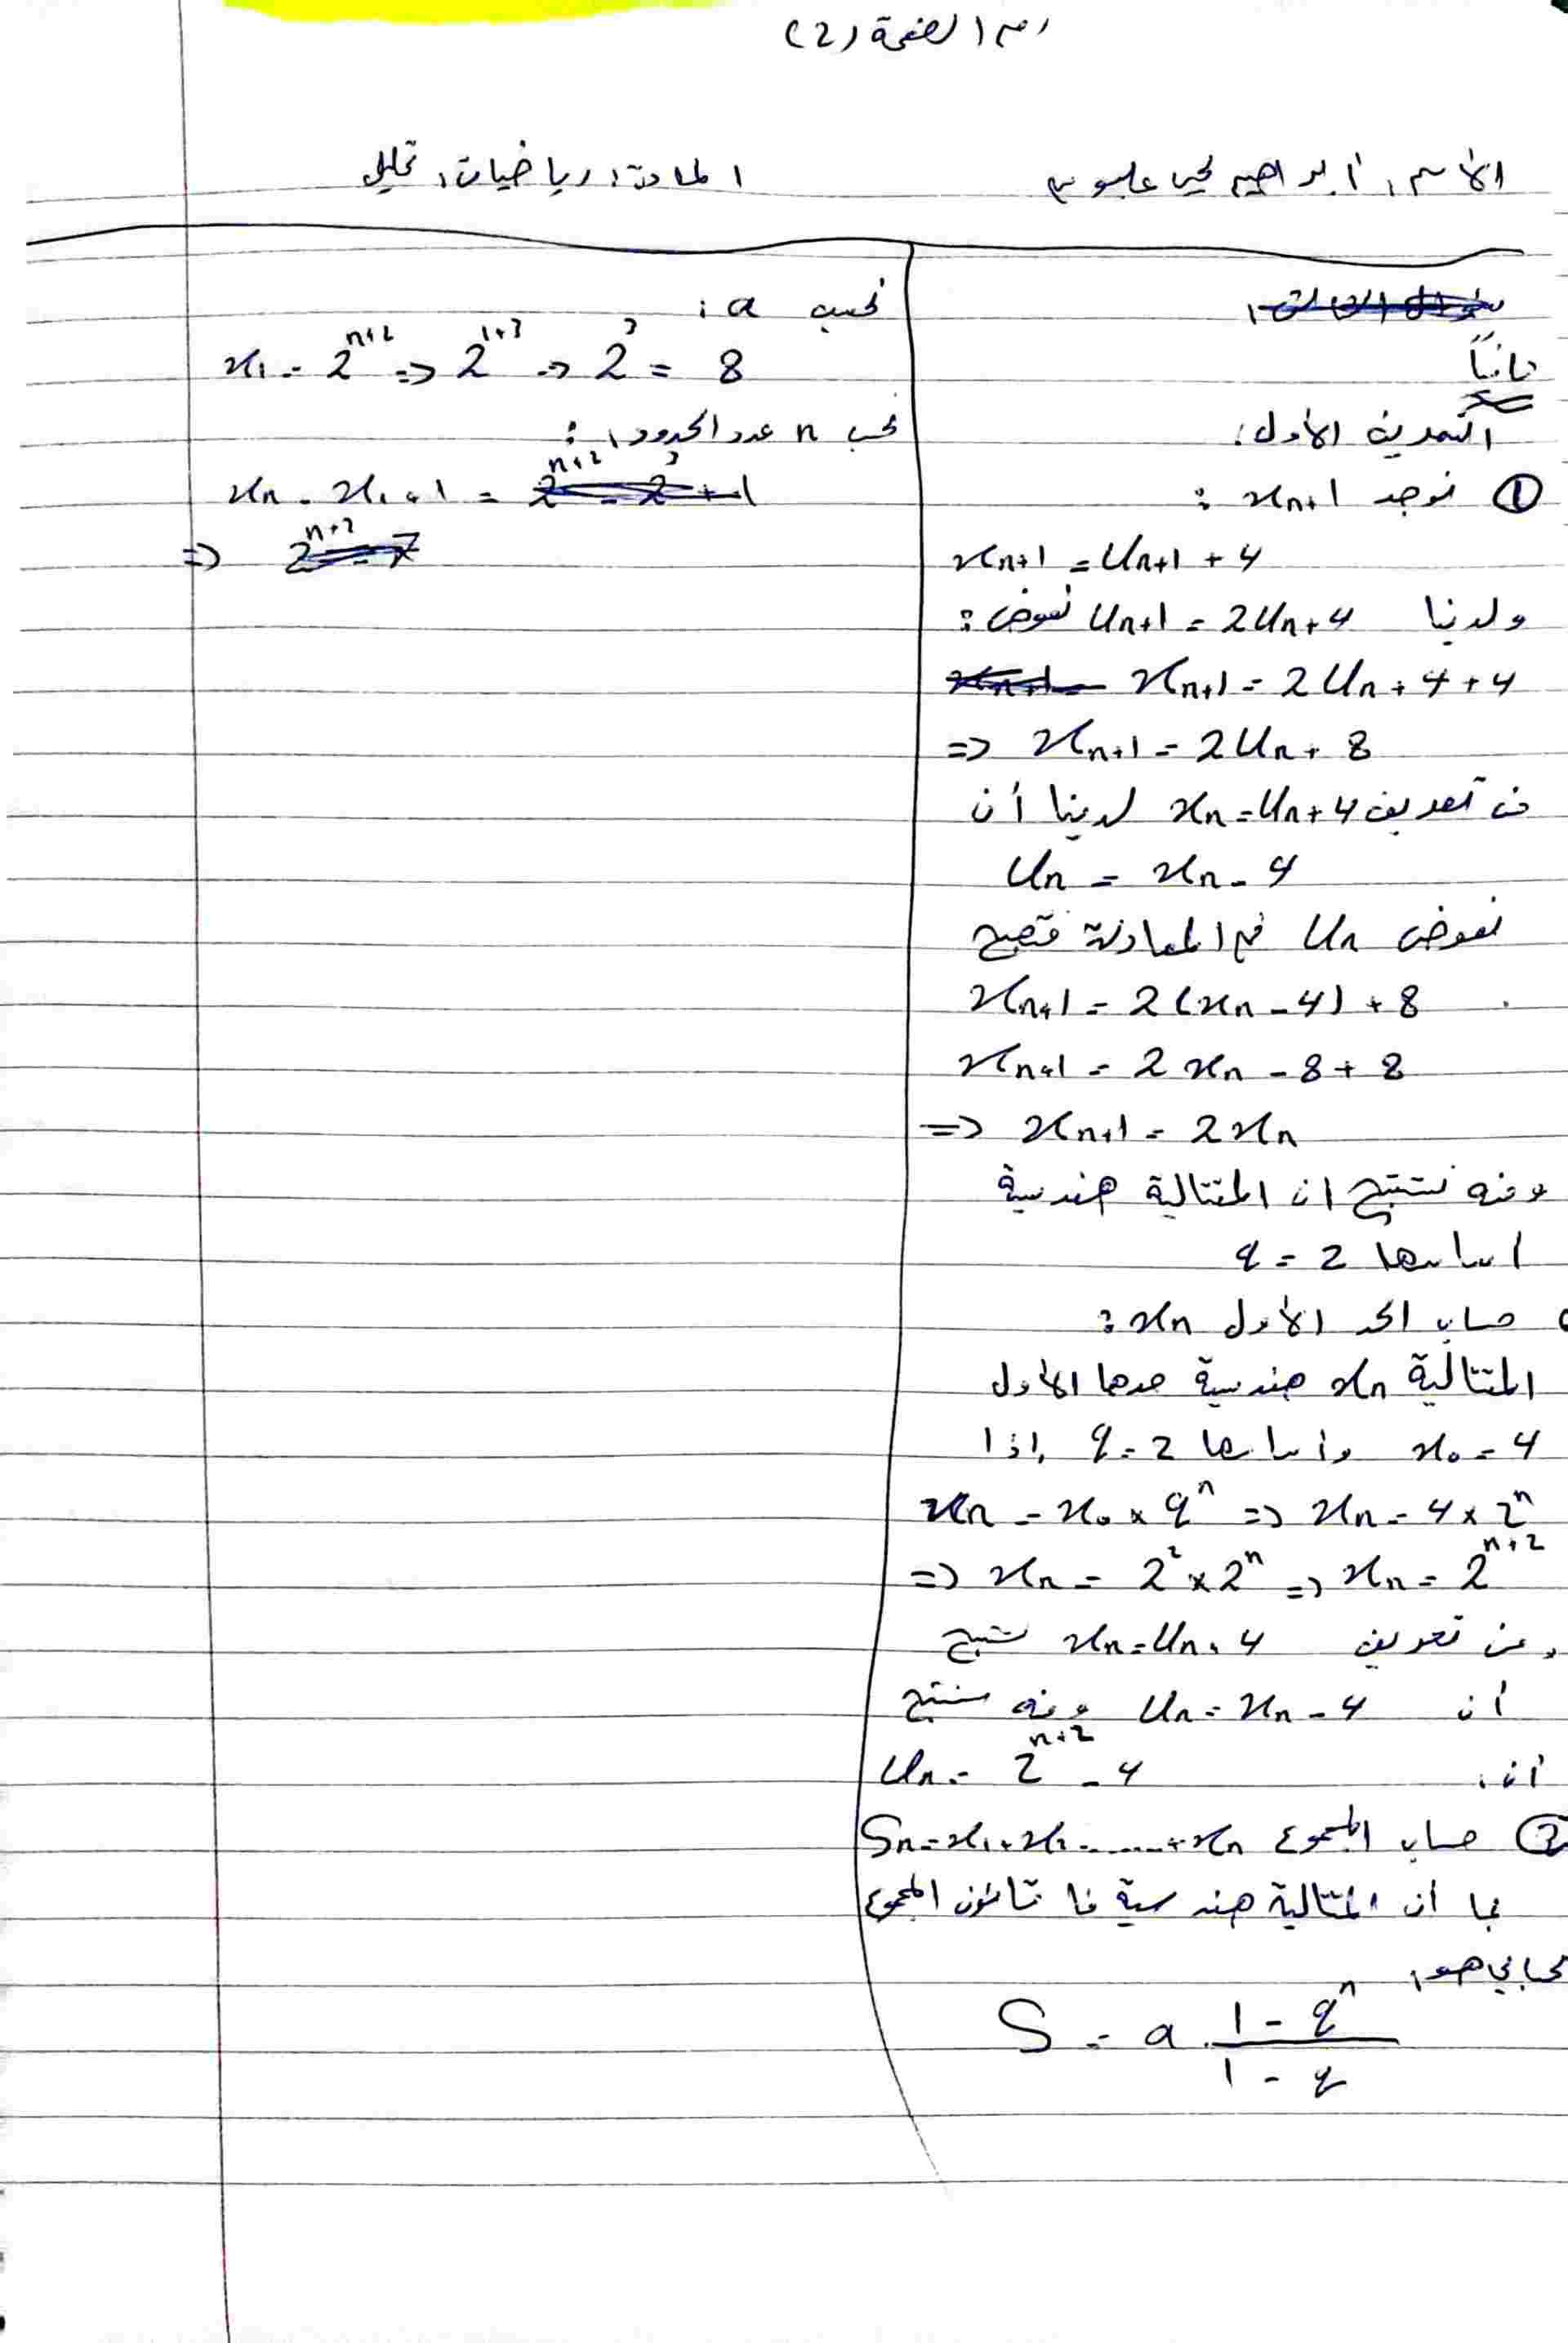 رقم الصفحة (2)
الاسم: ابراهيم يحيى علبوس
المادة: رياضيات: تحليل
ثانياً
التمرين الأول:
① نوجد xn+1 :
xn+1 = Un+1 + 4
ولدينا Un+1 = 2Un + 4 نعوض:
xn+1 = 2Un + 4 + 4
=> xn+1 = 2Un + 8
من تعريف xn = Un + 4 لدينا أن
Un = xn - 4
نعوض Un في المعادلة فتصبح
xn+1 = 2(xn - 4) + 8
xn+1 = 2xn - 8 + 8
=> xn+1 = 2xn
ومنه نستنتج ان المتتالية هندسية
اساسها q = 2
حساب الحد الأول xn :
المتتالية xn هندسية حدها الأول
x0 = 4 وأساسها q = 2 إذا
xn = x0 × qⁿ => xn = 4 × 2ⁿ
=> xn = 2² × 2ⁿ => xn = 2ⁿ⁺²
من تعريف xn = Un + 4 نستنتج
أن Un = xn - 4 ومنه نستنتج
أن: Un = 2ⁿ⁺² - 4
② حساب المجموع Sn = x1 + x2 ...... + xn
بما أن المتتالية هندسية فإن قانون المجموع
هو:
S = a . (1 - qⁿ) / (1 - q)
نحسب a :
x1 = 2ⁿ⁺² => 2¹⁺² => 2³ = 8
نحسب n عدد الحدود :
xn - x1 + 1 =
=>